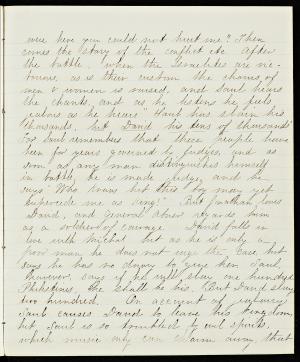 were here you could not hurt me." Then
comes the story of the conflict etc. After
the battle, when the Israelites are re-
turning as is their custom the chorus of
men & women is raised, and Saul hears
the chants, and as he listens he feels
jealous as he hears "Saul has slain his
thousands, but David his tens of thousands"
For Saul remembers that these people have
been for years governed by judges, and as
soon as any man distinguishes himself
in battle, he is made judge, and he
says "Who knows but this boy may yet
supercede me as king!" But Jonathan loves
David, and General Abner regards him
as a soldier of courage. David falls in
love with Michal but as he is only a
poor man he does not urge the case, but
says he has no dowry to give her. Saul,
however, says if he will slay one hundred
Philistines, she shall be his. But David slays
two hundred. On account of jealousy
Saul causes David to leave his kingdom,
but Saul is so troubled by evil spirits
which music only can charm away, that